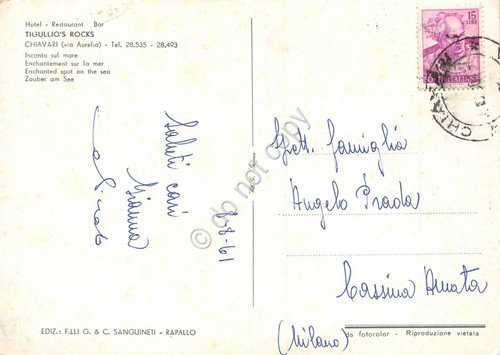 Hotel - Restaurant Bar
TIGULLIO'S ROCKS
CHIAVARI (via Aurelia) - Tel. 28.535 - 28.493
Incanto sul mare
Enchantement sur la mer
Enchanted spot on the sea
Zauber am See
Saluti cari
Gianna
8-8-61
15
LIRE
Gett. famiglia
Angelo Prada
Cassina Amata
(Milano)
da fotocolor - Riproduzione vietata
EDIZ.: F.LLI G. & C. SANGUINETI - RAPALLO
do not copy